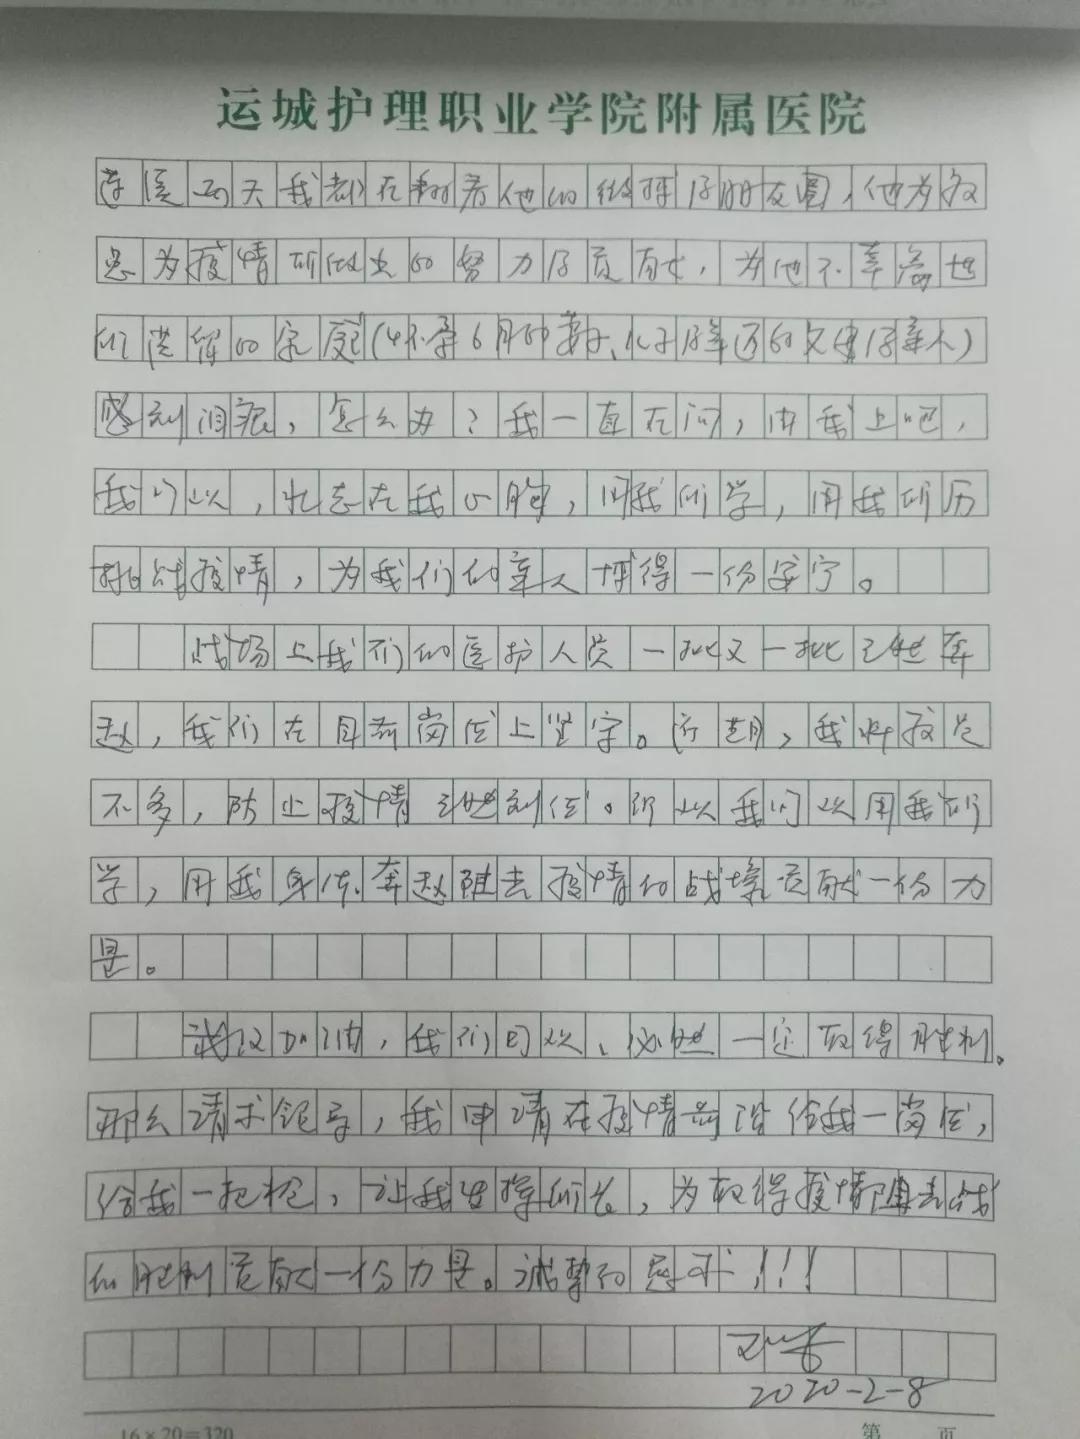 运城护理职业学院附属医院
这两天我都在翻着他的微博及朋友圈,他为女
患为疫情所做出的努力及贡献,为他不幸离世
所遗留的家庭(怀孕6月的妻子、儿子及年迈的父母及亲人)
感到泪痕,怎么办?我一直在问,由我上吧,
我可以,壮志在我心胸,用我所学,用我所历
挑战疫情,为我们的亲人博得一份安宁。
战场上我们的医护人员一批又一批已经奔
赴,我们在目前岗位上坚守。近期,我科疫是
不多,防止疫情已经到位。所以我可以用我所
学,用我身体奔赴阻击疫情的战壕贡献一份力
量。
武汉加油,我们可以、必然一定取得胜利。
那么请求领导,我申请在疫情前沿给我一岗位,
给我一把枪,让我发挥所长,为取得疫情阻击战
的胜利贡献一份力量。诚挚的恳求!!!
2020-2-8
16×20=320
第 页